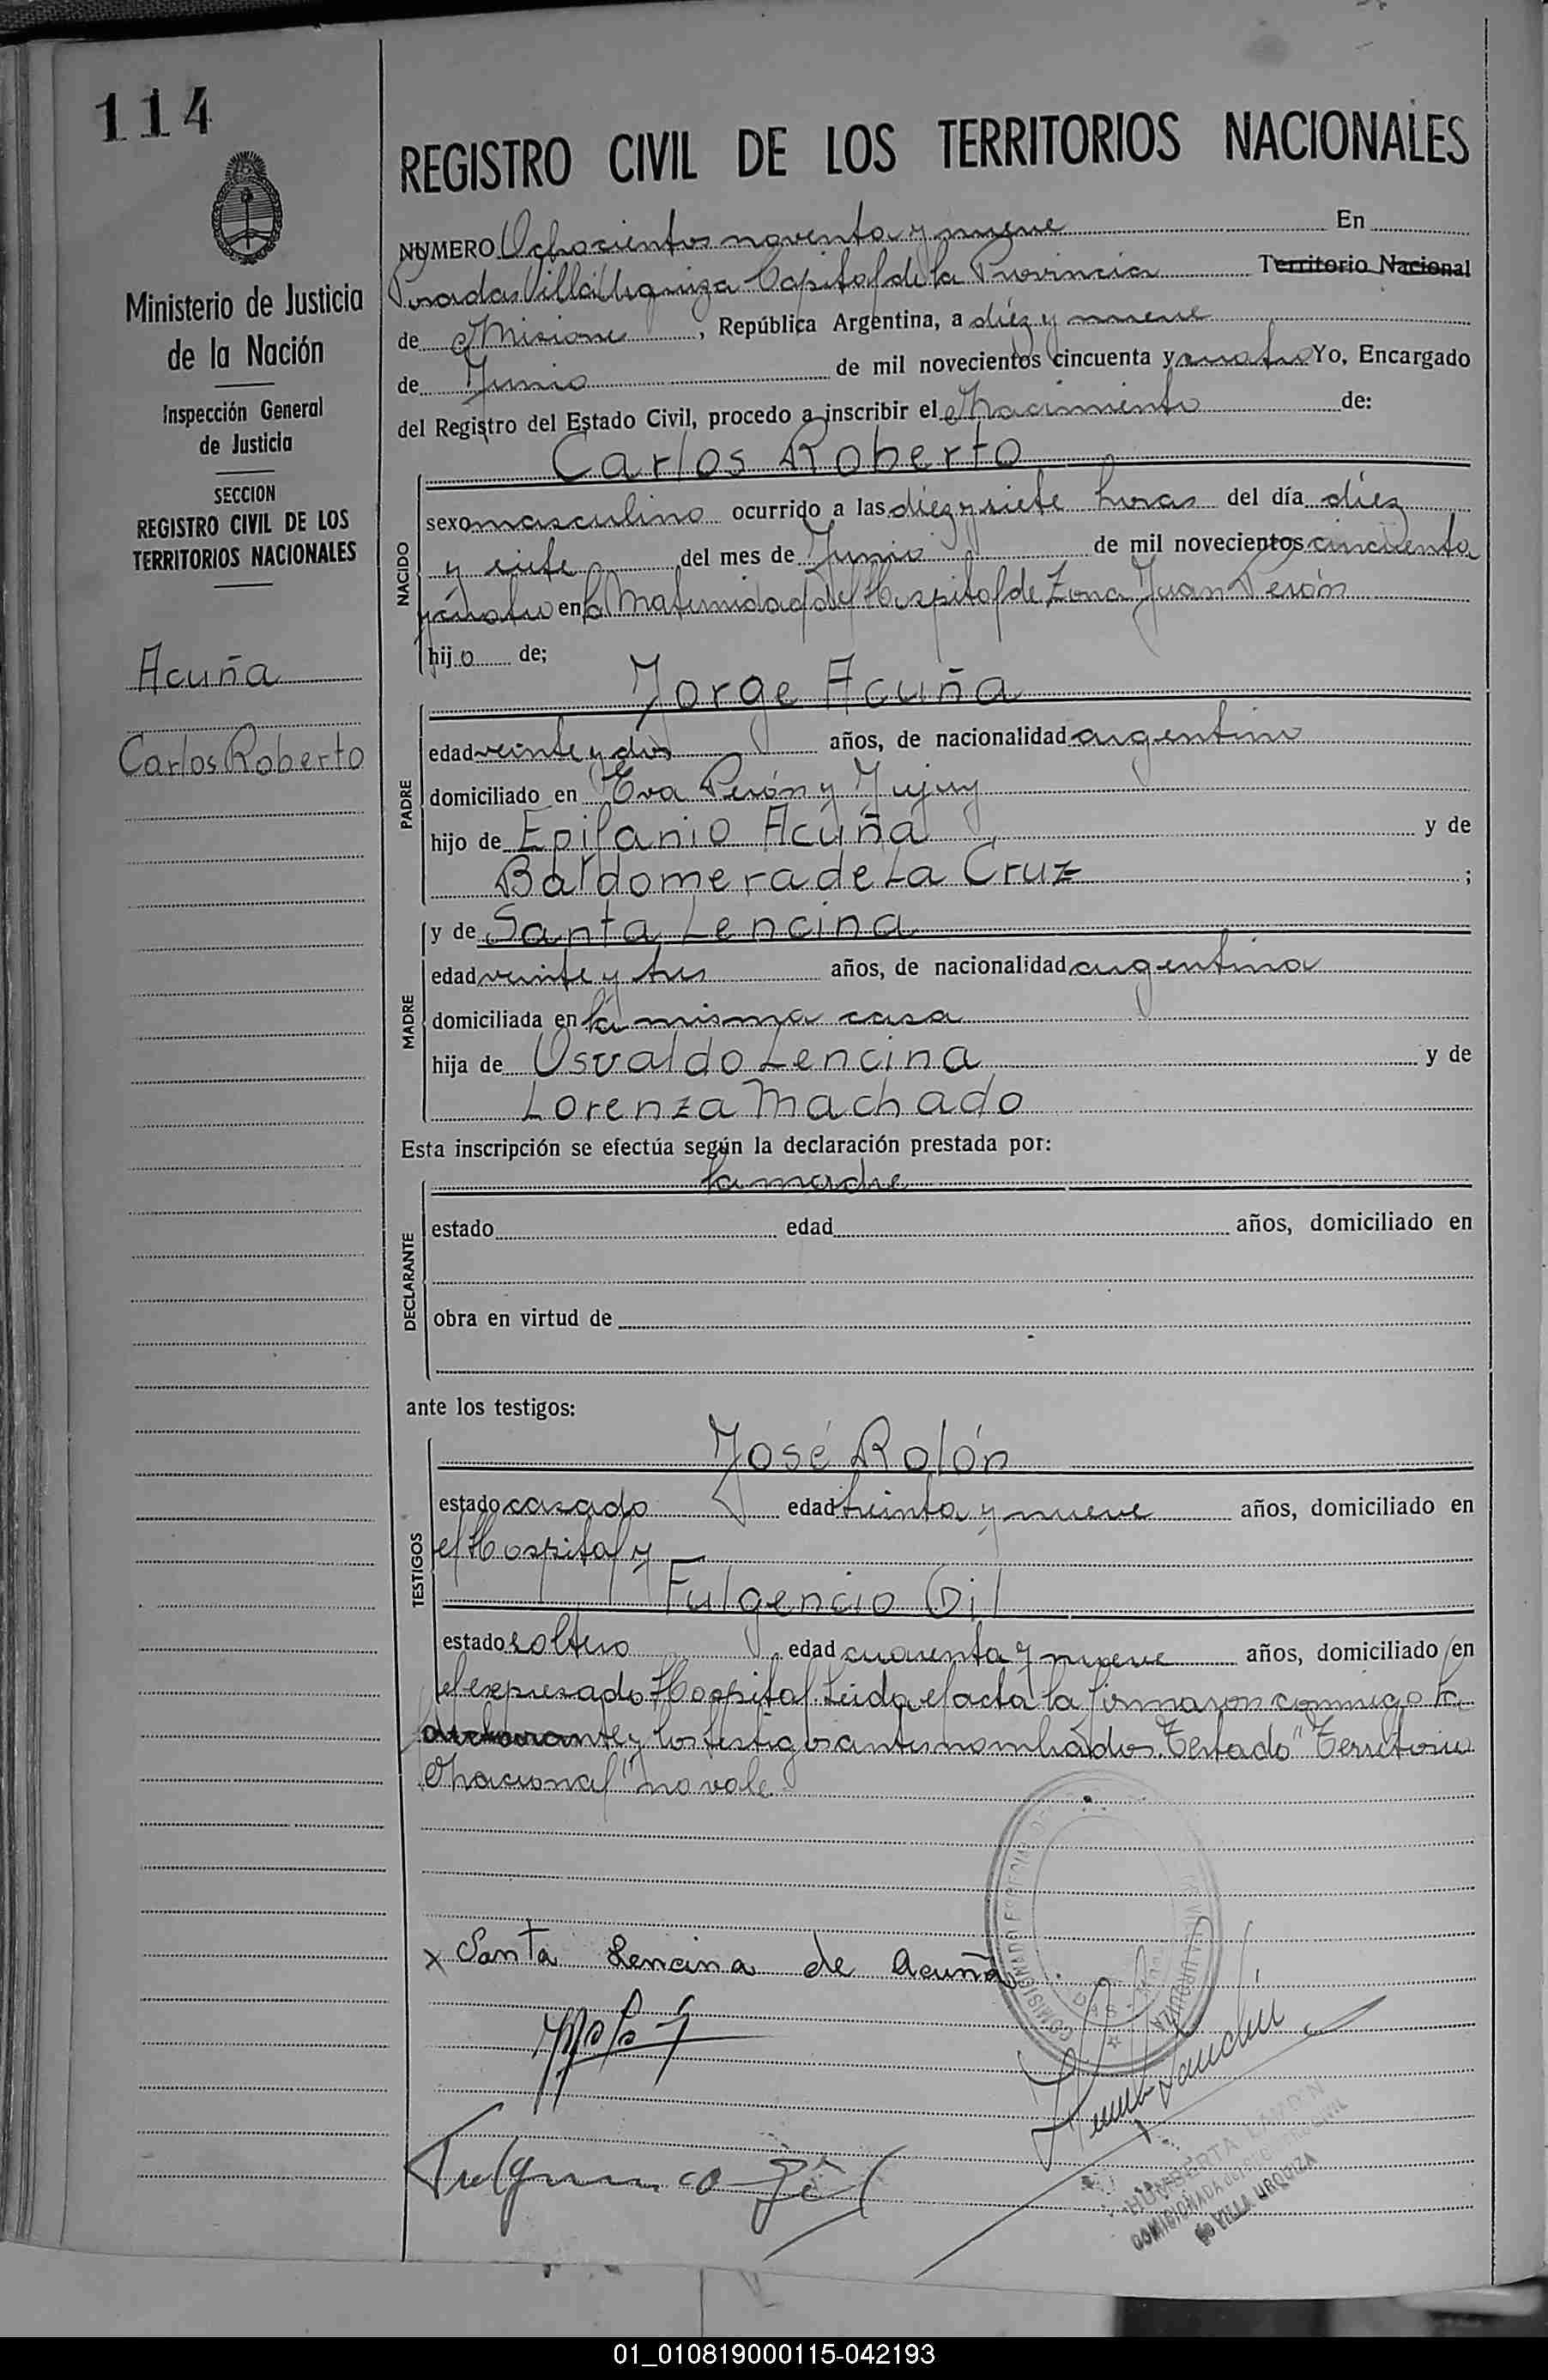 114
REGISTRO CIVIL DE LOS TERRITORIOS NACIONALES
Ministerio de Justicia
de la Nación
Inspección General
de Justicia
SECCION
REGISTRO CIVIL DE LOS
TERRITORIOS NACIONALES
Acuña
Carlos Roberto
NUMERO Ochocientos noventa y nueve En
Posadas Villa Urquiza Capital de la Provincia Territorio Nacional
de Misiones, República Argentina, a diez y nueve
de Junio de mil novecientos cincuenta y cuatro Yo, Encargado
del Registro del Estado Civil, procedo a inscribir el Nacimiento de:
Carlos Roberto
NACIDO
sexo masculino ocurrido a las diez y siete horas del día diez
y siete del mes de Junio de mil novecientos cincuenta
y cuatro en la Maternidad del Hospital de Zona Juan Perón
hijo de;
Jorge Acuña
PADRE
edad veinte y dos años, de nacionalidad argentino
domiciliado en Eva Perón y Jujuy
hijo de Epifanio Acuña y de
Baldomera de La Cruz ;
y de Santa Lencina
MADRE
edad veinte y tres años, de nacionalidad argentina
domiciliada en la misma casa
hija de Osvaldo Lencina y de
Lorenza Machado
Esta inscripción se efectúa según la declaración prestada por:
la madre
DECLARANTE
estado edad años, domiciliado en
obra en virtud de
ante los testigos:
José Rolón
TESTIGOS
estado casado edad treinta y nueve años, domiciliado en
el Hospital y
Fulgencio Gil
estado soltero edad cuarenta y nueve años, domiciliado en
el expresado Hospital. Leída el acta la firmaron conmigo la
declarante y los testigos antes nombrados. Testado "Territorio
Nacional" no vale.
x Santa Lencina de Acuña
Fulgencio Gil
COMISIONADA del REG. CIVIL
VILLA URQUIZA
01_010819000115-042193